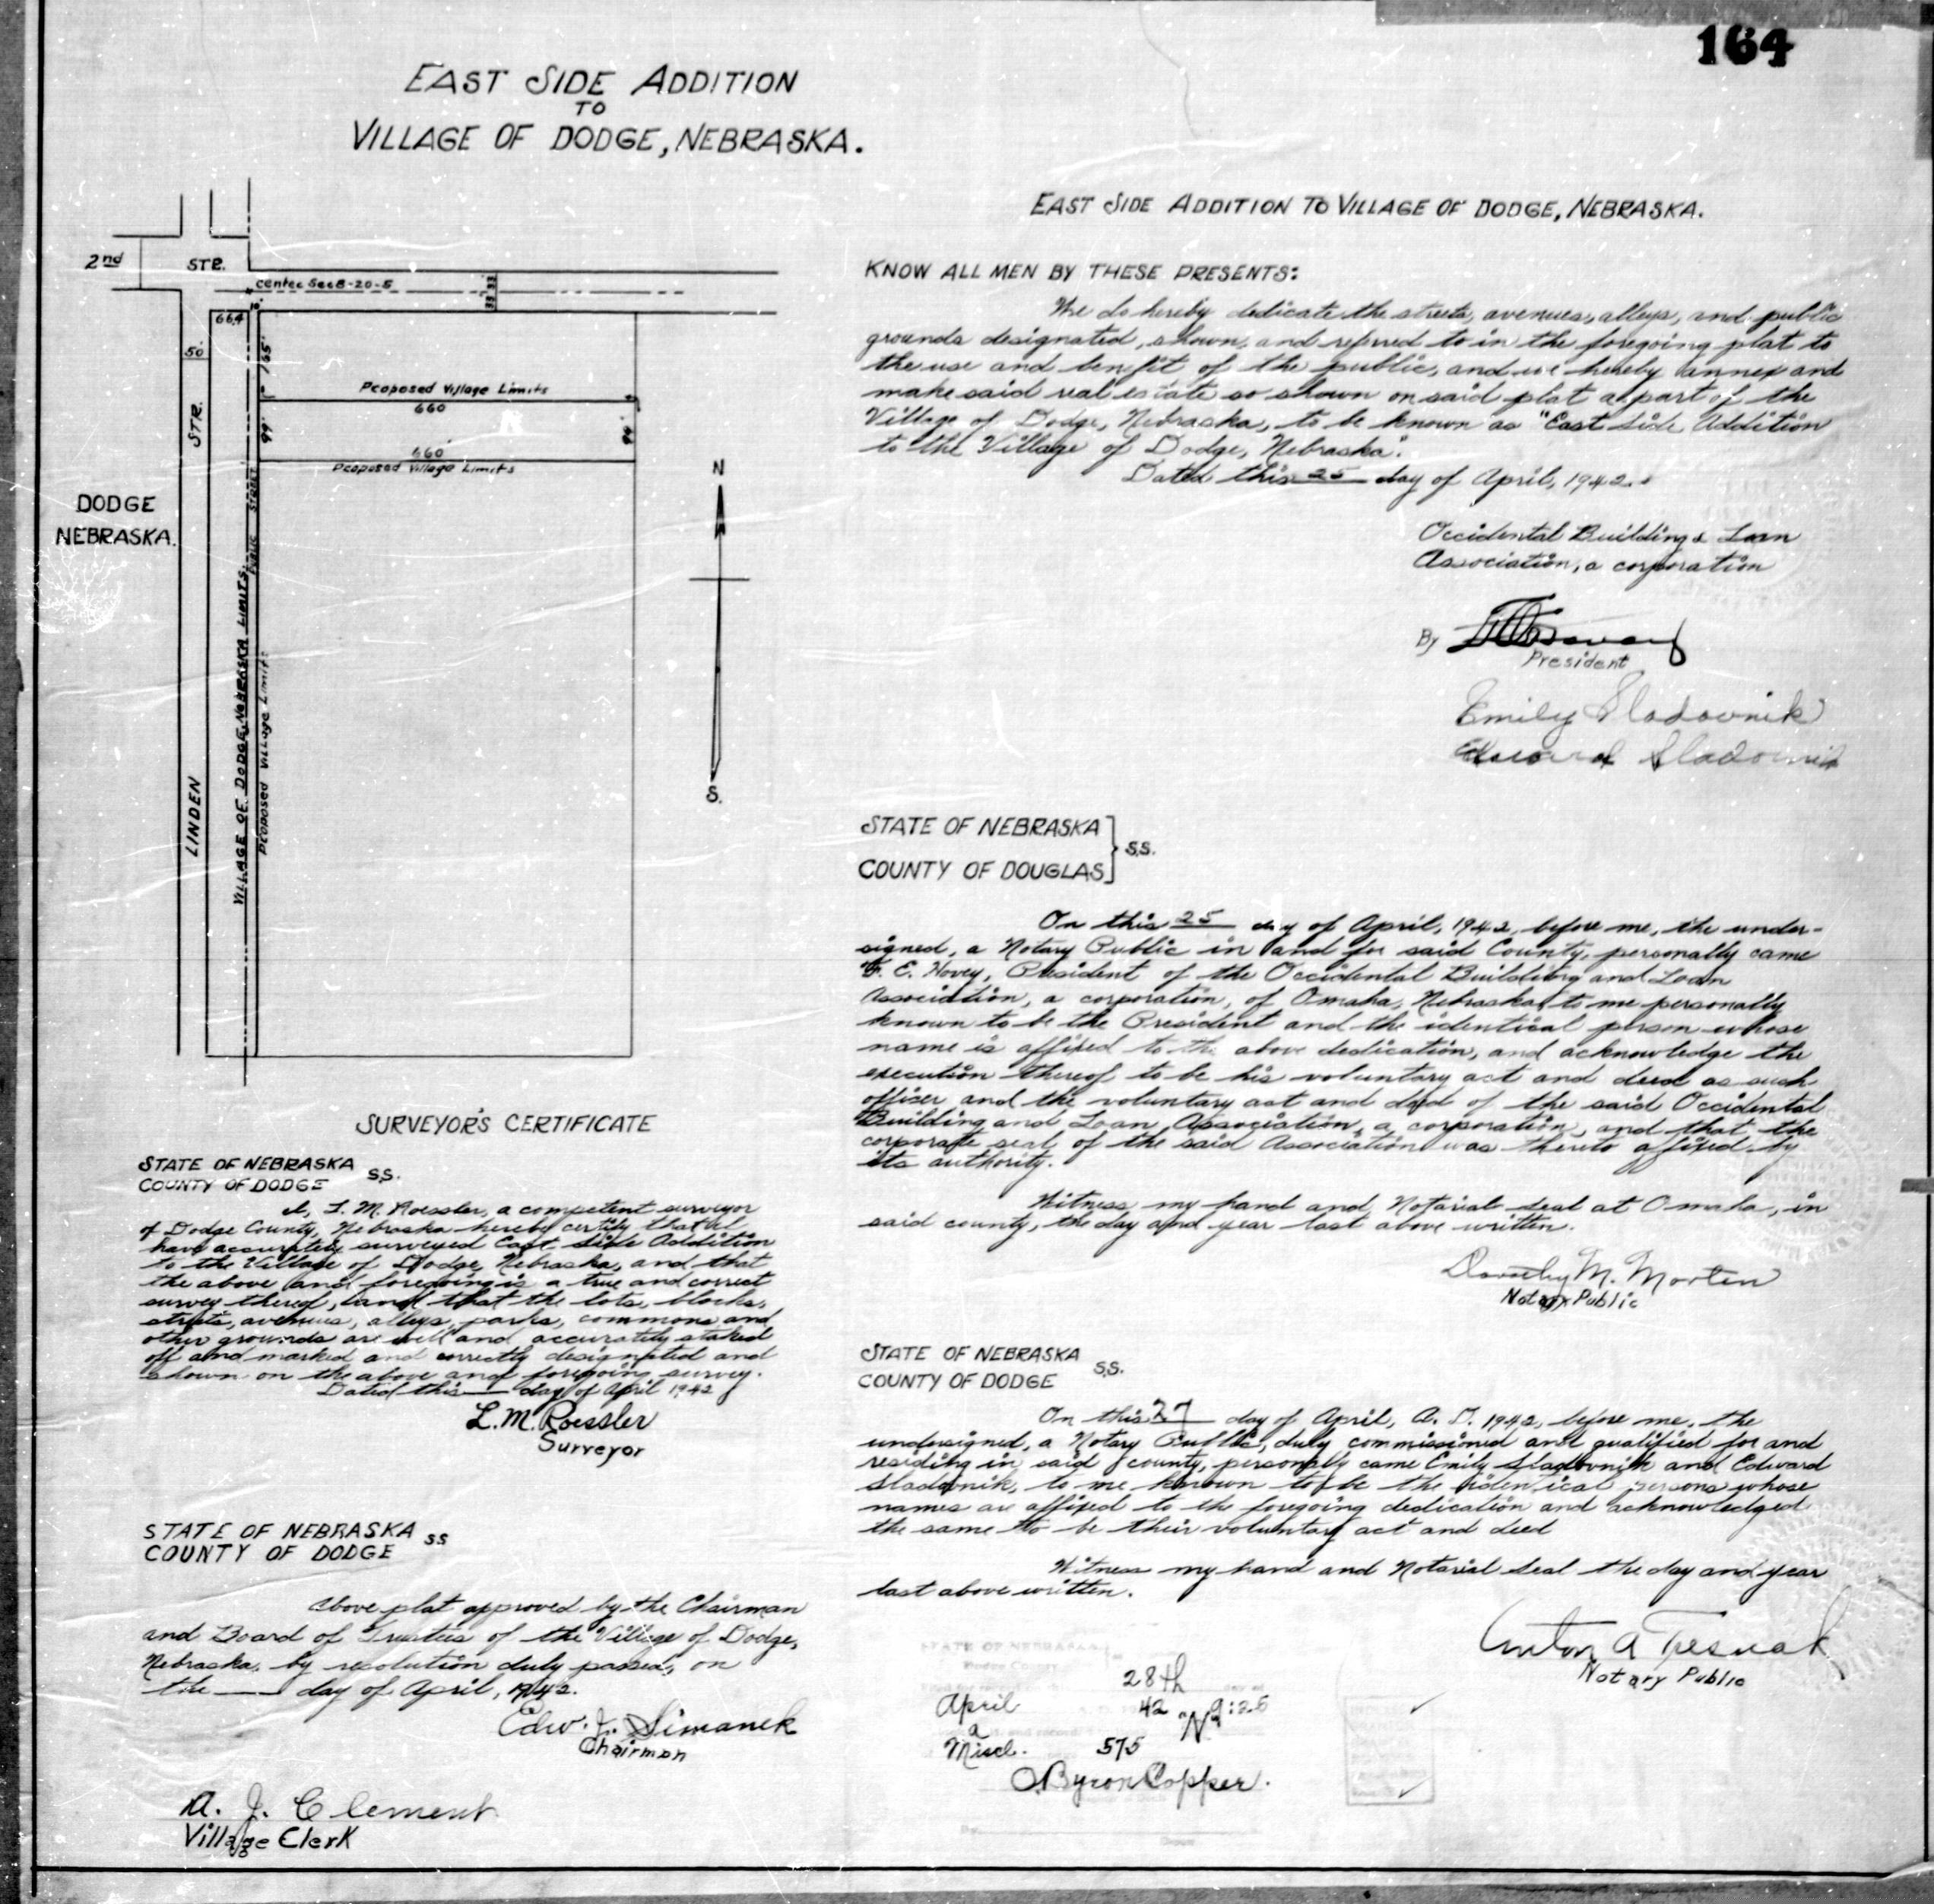 164
EAST SIDE ADDITION
TO
VILLAGE OF DODGE, NEBRASKA.
2nd STR.
center Sec 8-20-5
33 33
66.4
10'
50'
165'
Proposed Village Limits
660
99'
99'
660'
Proposed Village Limits
STR.
LINDEN
DODGE
NEBRASKA.
PUBLIC STREET
VILLAGE OF DODGE, NEBRASKA LIMITS.
Proposed Village Limits
N
S.
SURVEYOR'S CERTIFICATE
STATE OF NEBRASKA
COUNTY OF DODGE S.S.
I, L. M. Roessler, a competent surveyor
of Dodge County, Nebraska hereby certify that I
have accurately surveyed East Side Addition
to the Village of Dodge, Nebraska, and that
the above and foregoing is a true and correct
survey thereof, and that the lots, blocks,
streets, avenues, alleys, parks, commons and
other grounds are well and accurately staked
off and marked and correctly designated and
shown on the above and foregoing survey.
Dated this day of April 1942
L. M. Roessler
Surveyor
STATE OF NEBRASKA
COUNTY OF DODGE SS
Above plat approved by the Chairman
and Board of Trustees of the Village of Dodge,
Nebraska, by resolution duly passed, on
the day of April, 1942.
Edw. J. Simanek
Chairman
A. J. Clement
Village Clerk
EAST SIDE ADDITION TO VILLAGE OF DODGE, NEBRASKA.
KNOW ALL MEN BY THESE PRESENTS:
We do hereby dedicate the streets, avenues, alleys, and public
grounds designated, shown, and referred to in the foregoing plat to
the use and benefit of the public, and we hereby annex and
make said real estate so shown on said plat a part of the
Village of Dodge, Nebraska, to be known as "East Side Addition
to the Village of Dodge, Nebraska".
Dated this 25 day of April, 1942.
Occidental Building & Loan
Association, a corporation
By
President
Emily Sladovnik
Edward Sladovnik
STATE OF NEBRASKA
COUNTY OF DOUGLAS S.S.
On this 25 day of April, 1942, before me, the under-
signed, a Notary Public in and for said County, personally came
F. E. Hovey, President of the Occidental Building and Loan
Association, a corporation, of Omaha, Nebraska, to me personally
known to be the President and the identical person whose
name is affixed to the above dedication, and acknowledge the
execution thereof to be his voluntary act and deed as such
officer and the voluntary act and deed of the said Occidental
Building and Loan Association, a corporation, and that the
corporate seal of the said Association was thereto affixed by
its authority.
Witness my hand and Notarial seal at Omaha, in
said county, the day and year last above written.
Dorothy M. Morten
Notary Public
STATE OF NEBRASKA
COUNTY OF DODGE S.S.
On this 27 day of April, A. D. 1942, before me, the
undersigned, a Notary Public, duly commissioned and qualified for and
residing in said county, personally came Emily Sladovnik and Edward
Sladovnik, to me known to be the identical persons whose
names are affixed to the foregoing dedication and acknowledged
the same to be their voluntary act and deed
Witness my hand and Notarial Seal the day and year
last above written.
Anton A Tesnak
Notary Public
STATE OF NEBRASKA
Dodge County
28th
April 42 9:25
Miscl. 575
Byron Copper.